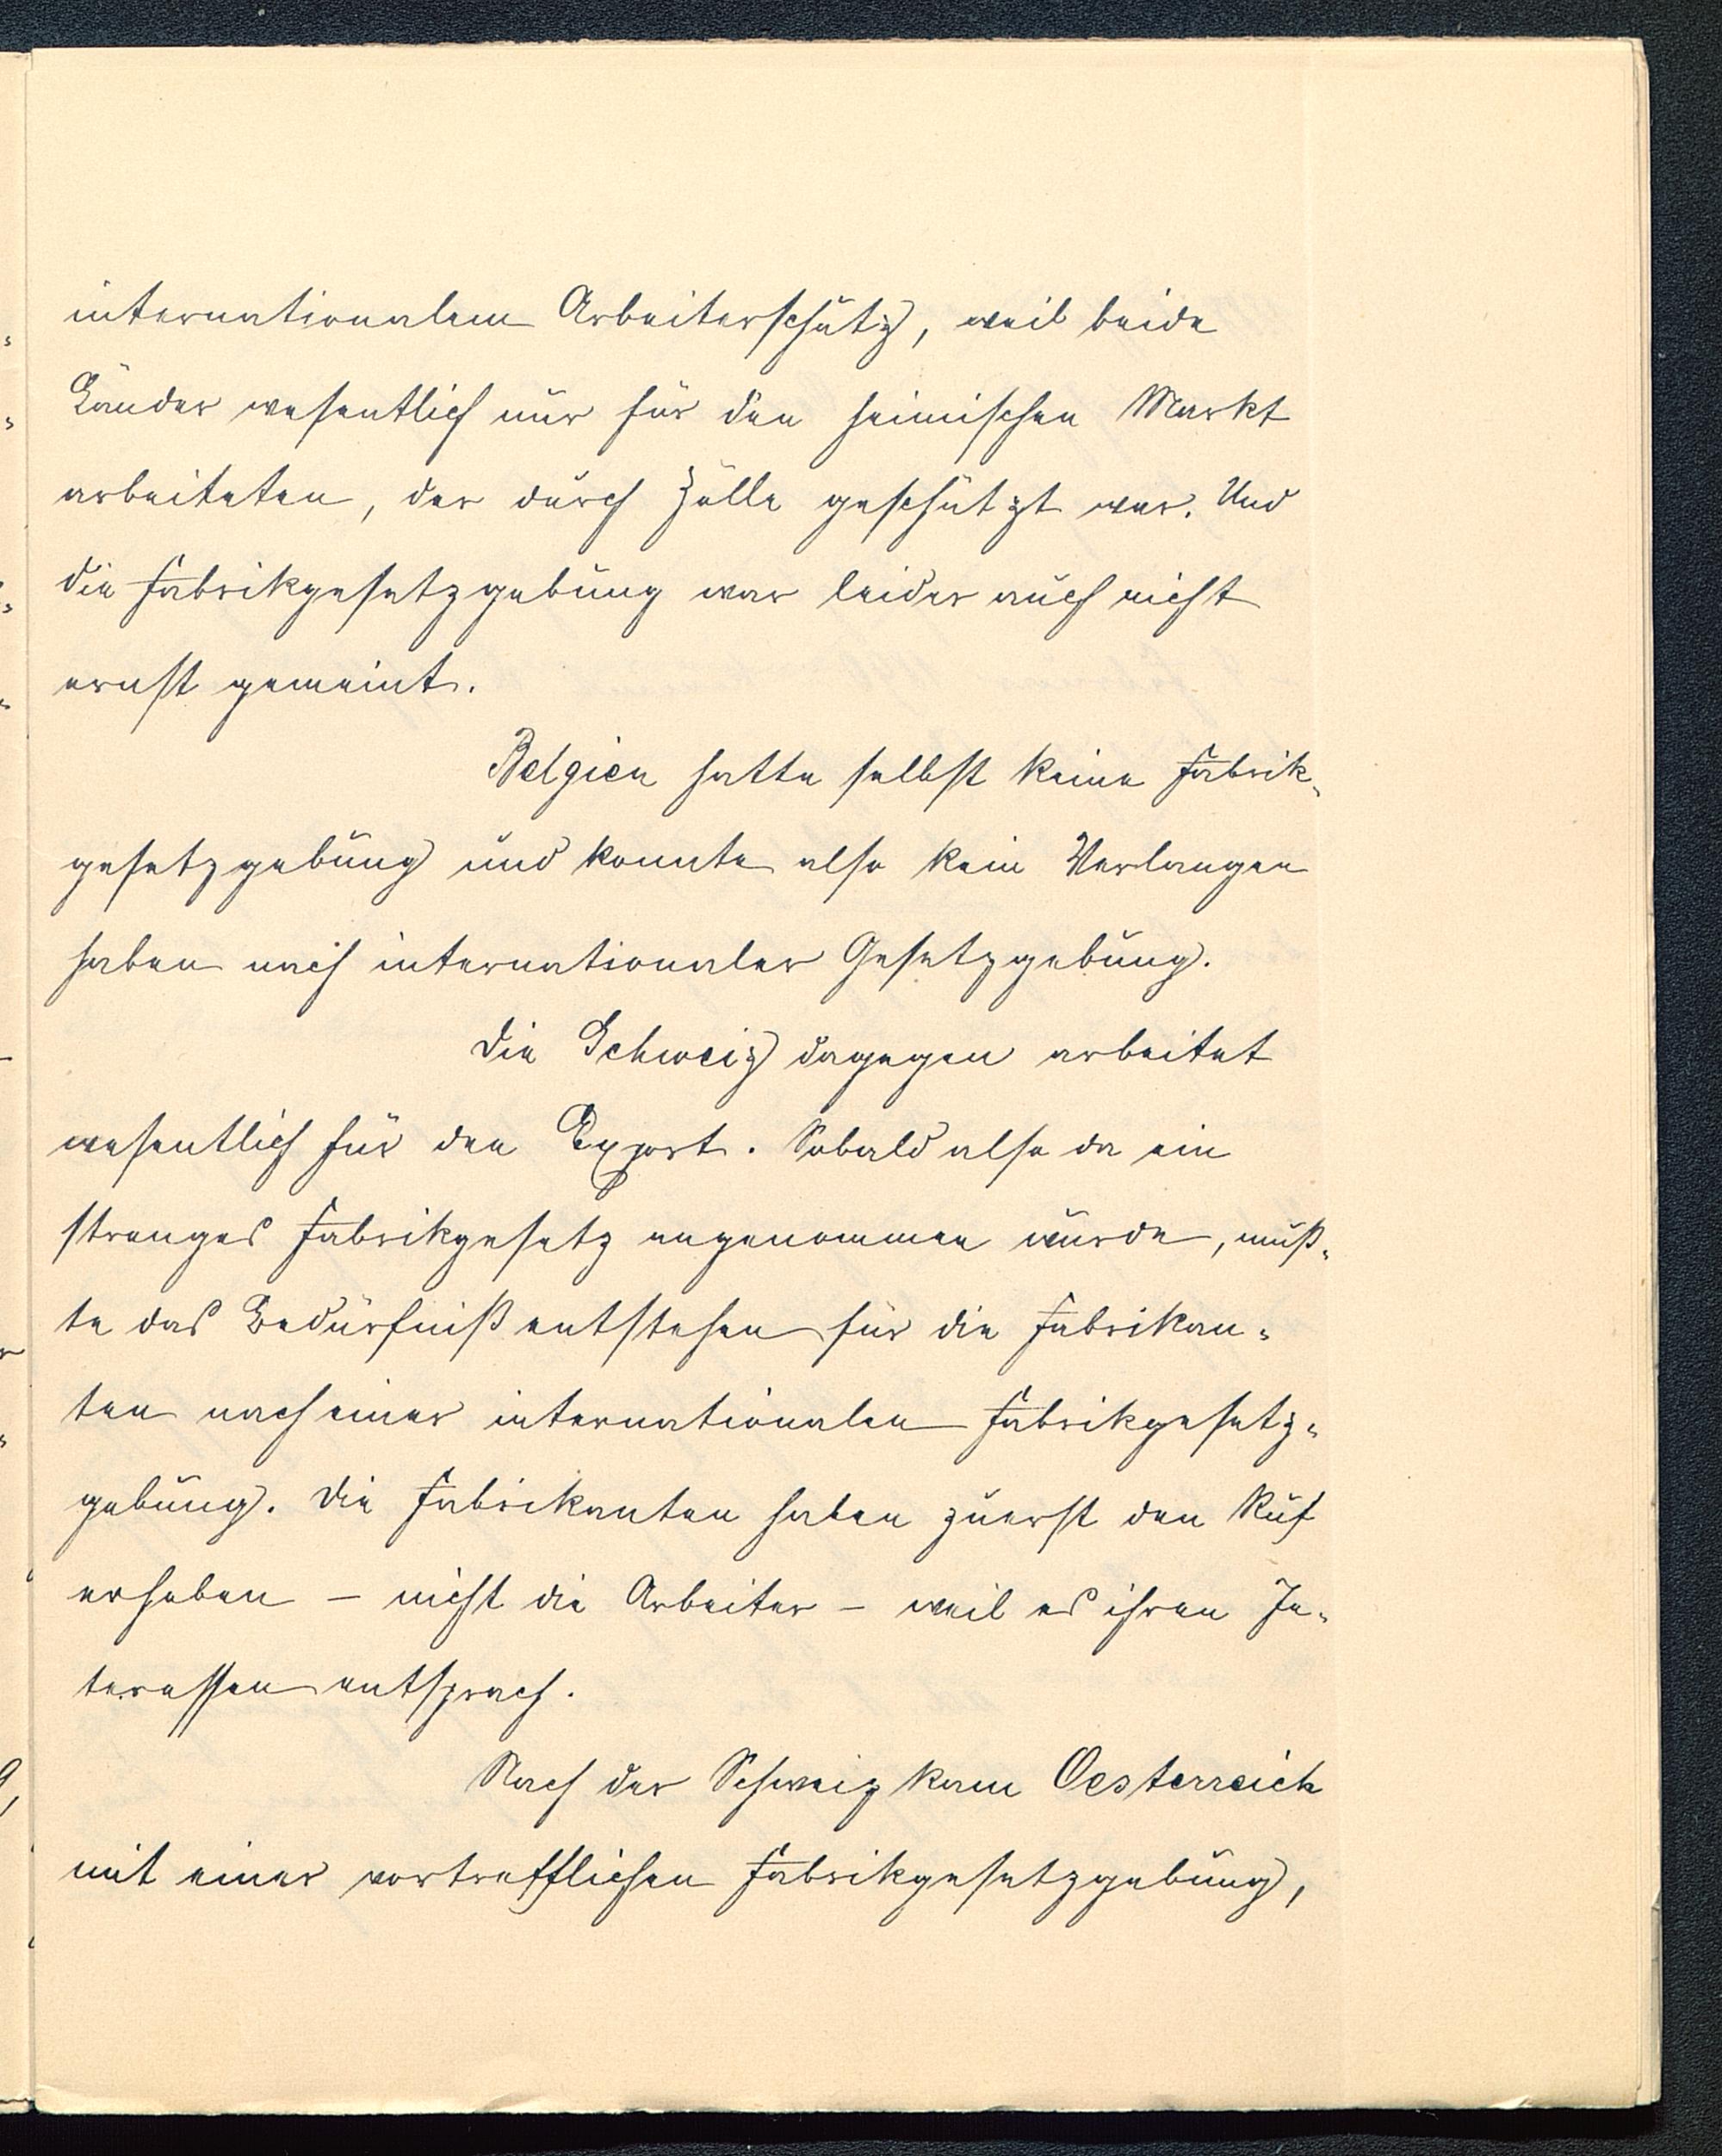 internationalem Arbeiterschutz, weil beide
Länder wesentlich nur für den heimischen Markt
arbeiteten, der durch Zölle geschützt war. Und
die Fabrikgesetzgebung war leider auch nicht
ernst gemeint.
Belgien hatte selbst keine Fabrik-
gesetzgebung und konnte also kein Verlangen
haben nach internationaler Gesetzgebung.
Die Schweiz dagegen arbeitet
wesentlich für den Export. Sobald also da ein
strenges Fabrikgesetz angenommen wurde, muß-
te das Bedürfniß entstehen für die Fabrikan-
ten nach einer internationalen Fabrikgesetz-
gebung. Die Fabrikanten haben zuerst den Ruf
erhoben – nicht die Arbeiter – weil es ihren In-
teressen entsprach.
Nach der Schweiz kam Oesterreich
mit einer vortrefflichen Fabrikgesetzgebung,